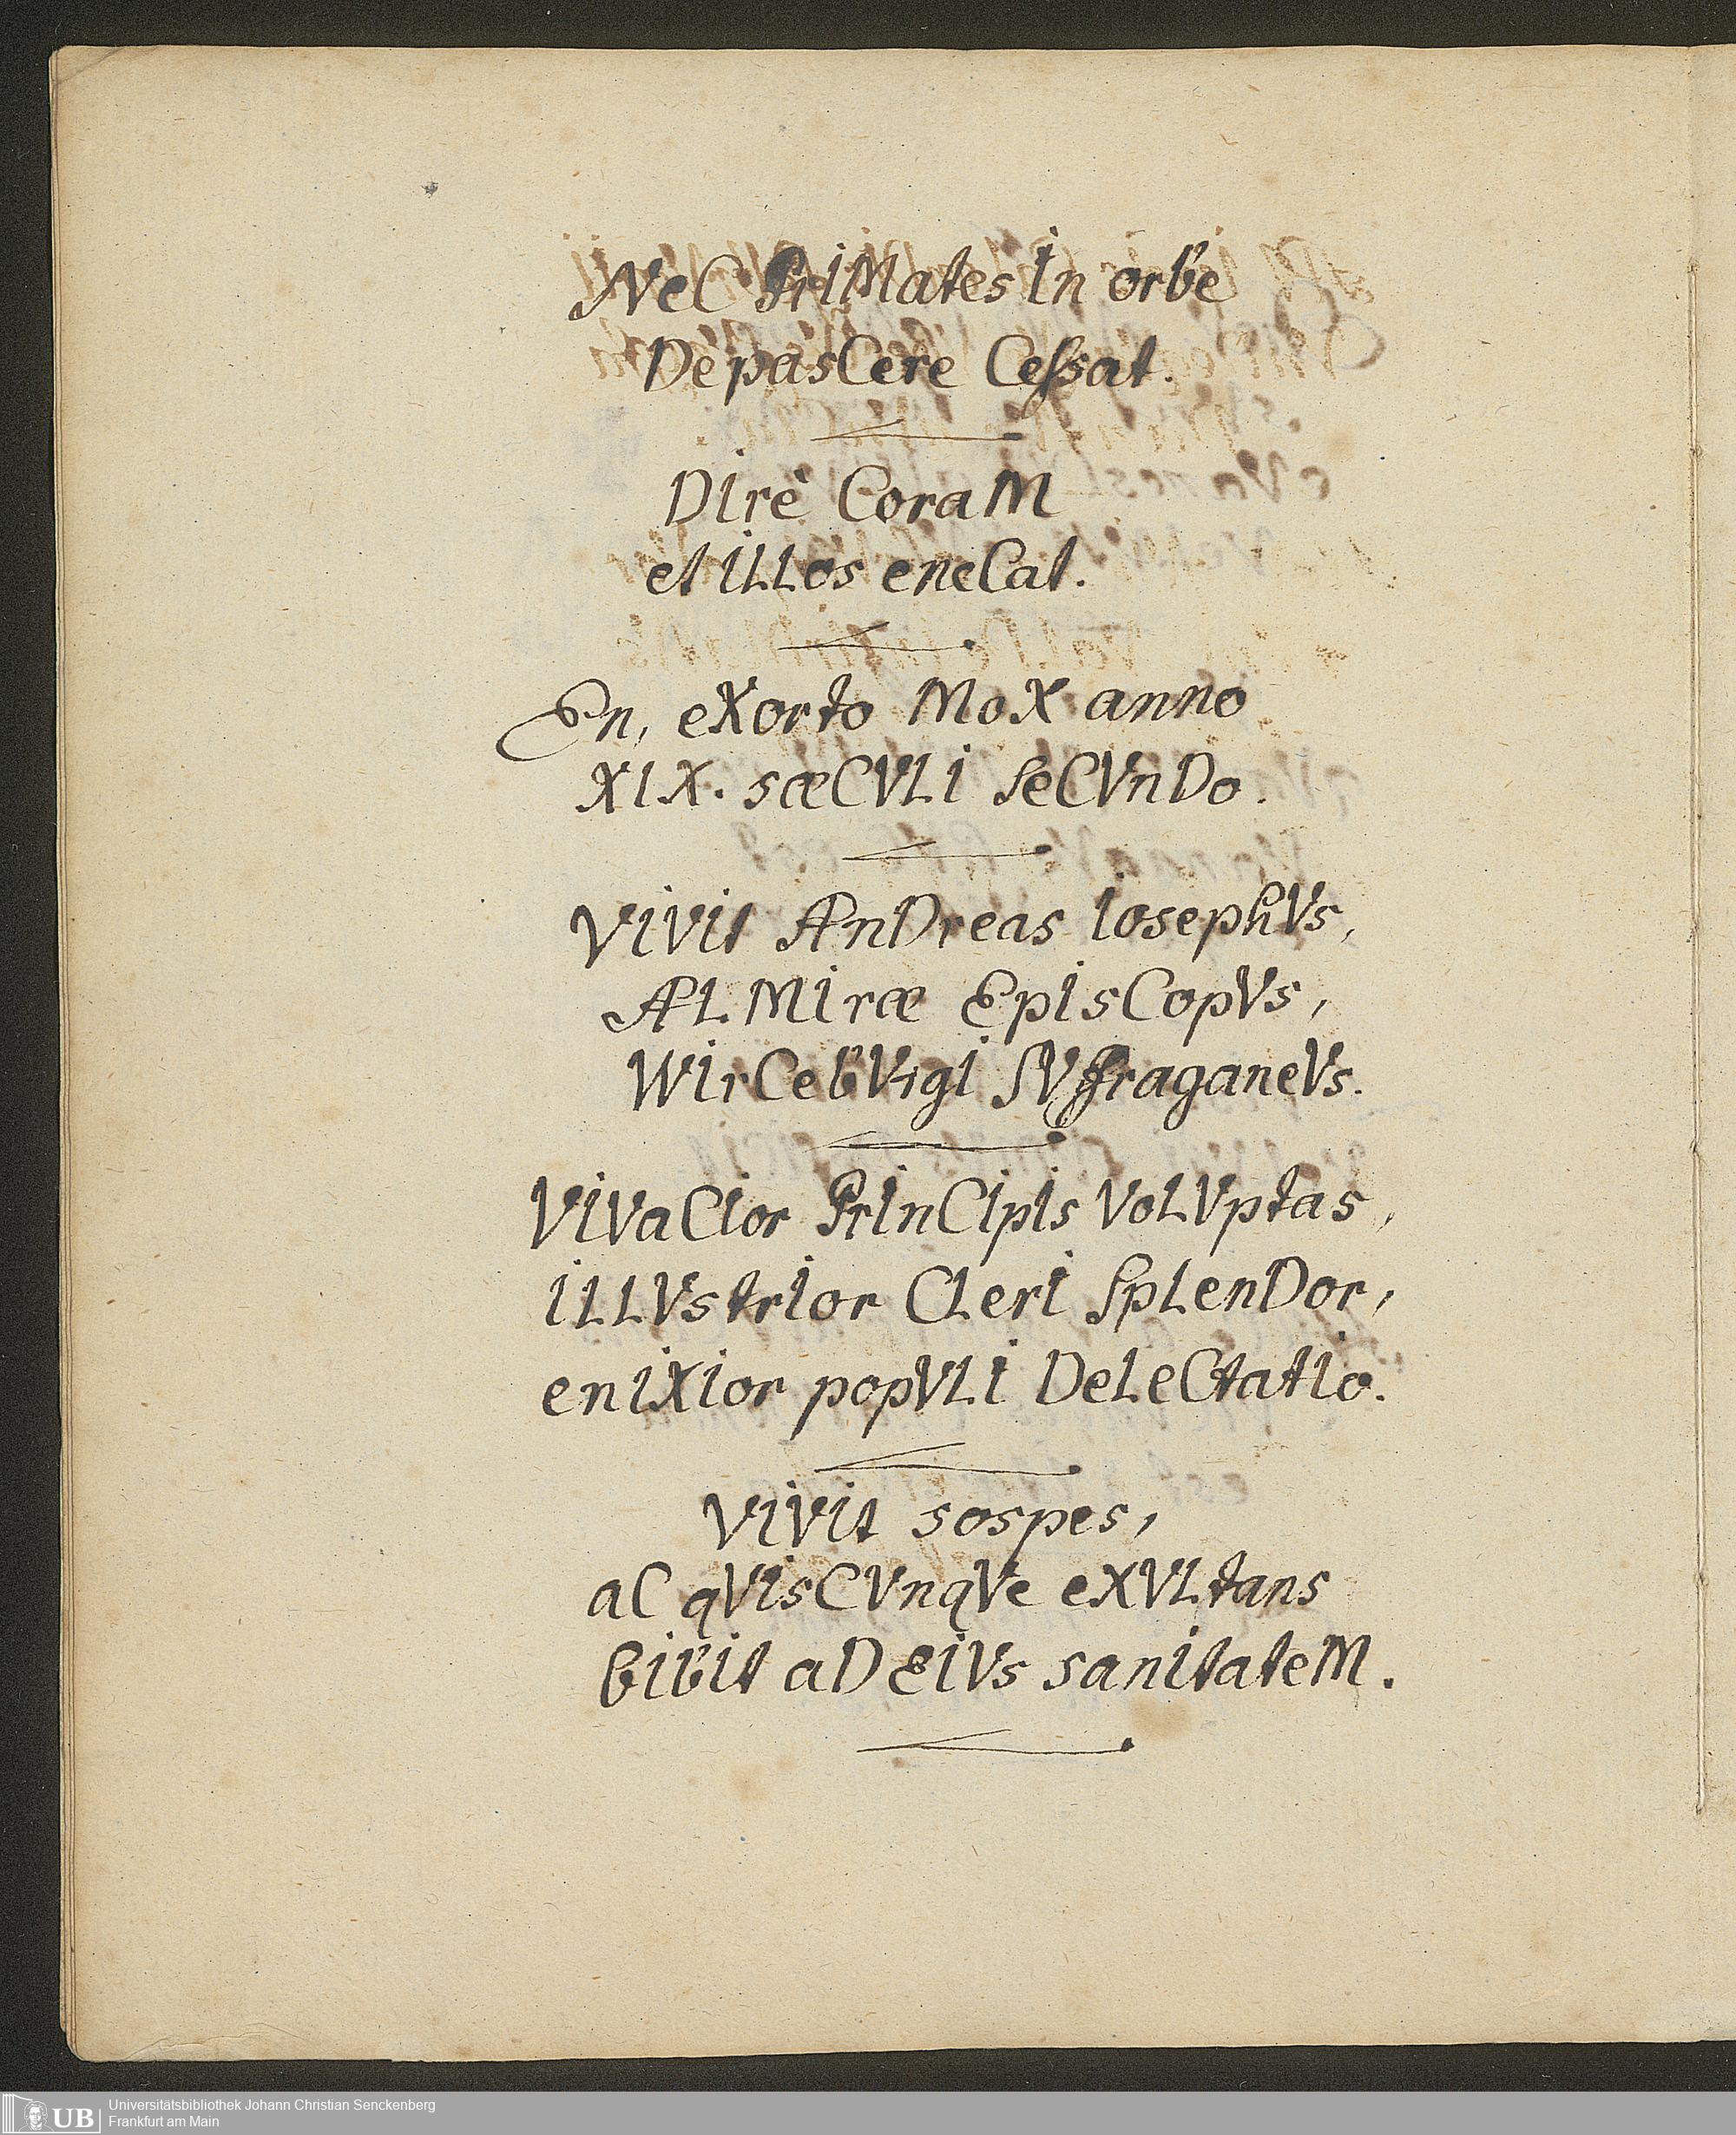 NeC PriMates In orbe
DepasCere Cessat.
DIrè CoraM
et iLLos eneCat.
En, eXorto MoX anno
XIX. sæCVLI SeCVnDo.
VIVIt AnDreas IosephVs,
ALMIræ EpIsCopVs,
WIrCebVrgI SVffraganeVs.
VIVaCIor PrInCIpIs VoLVptas,
ILLVstrIor CLerI SpLenDor,
enIXIor popVLI DeLeCtatIo.
VIVIt sospes,
aC qVIsCVnqVe eXVLtans
bIbIt aD EIVs sanItateM.
UB
Universitätsbibliothek Johann Christian Senckenberg
Frankfurt am Main